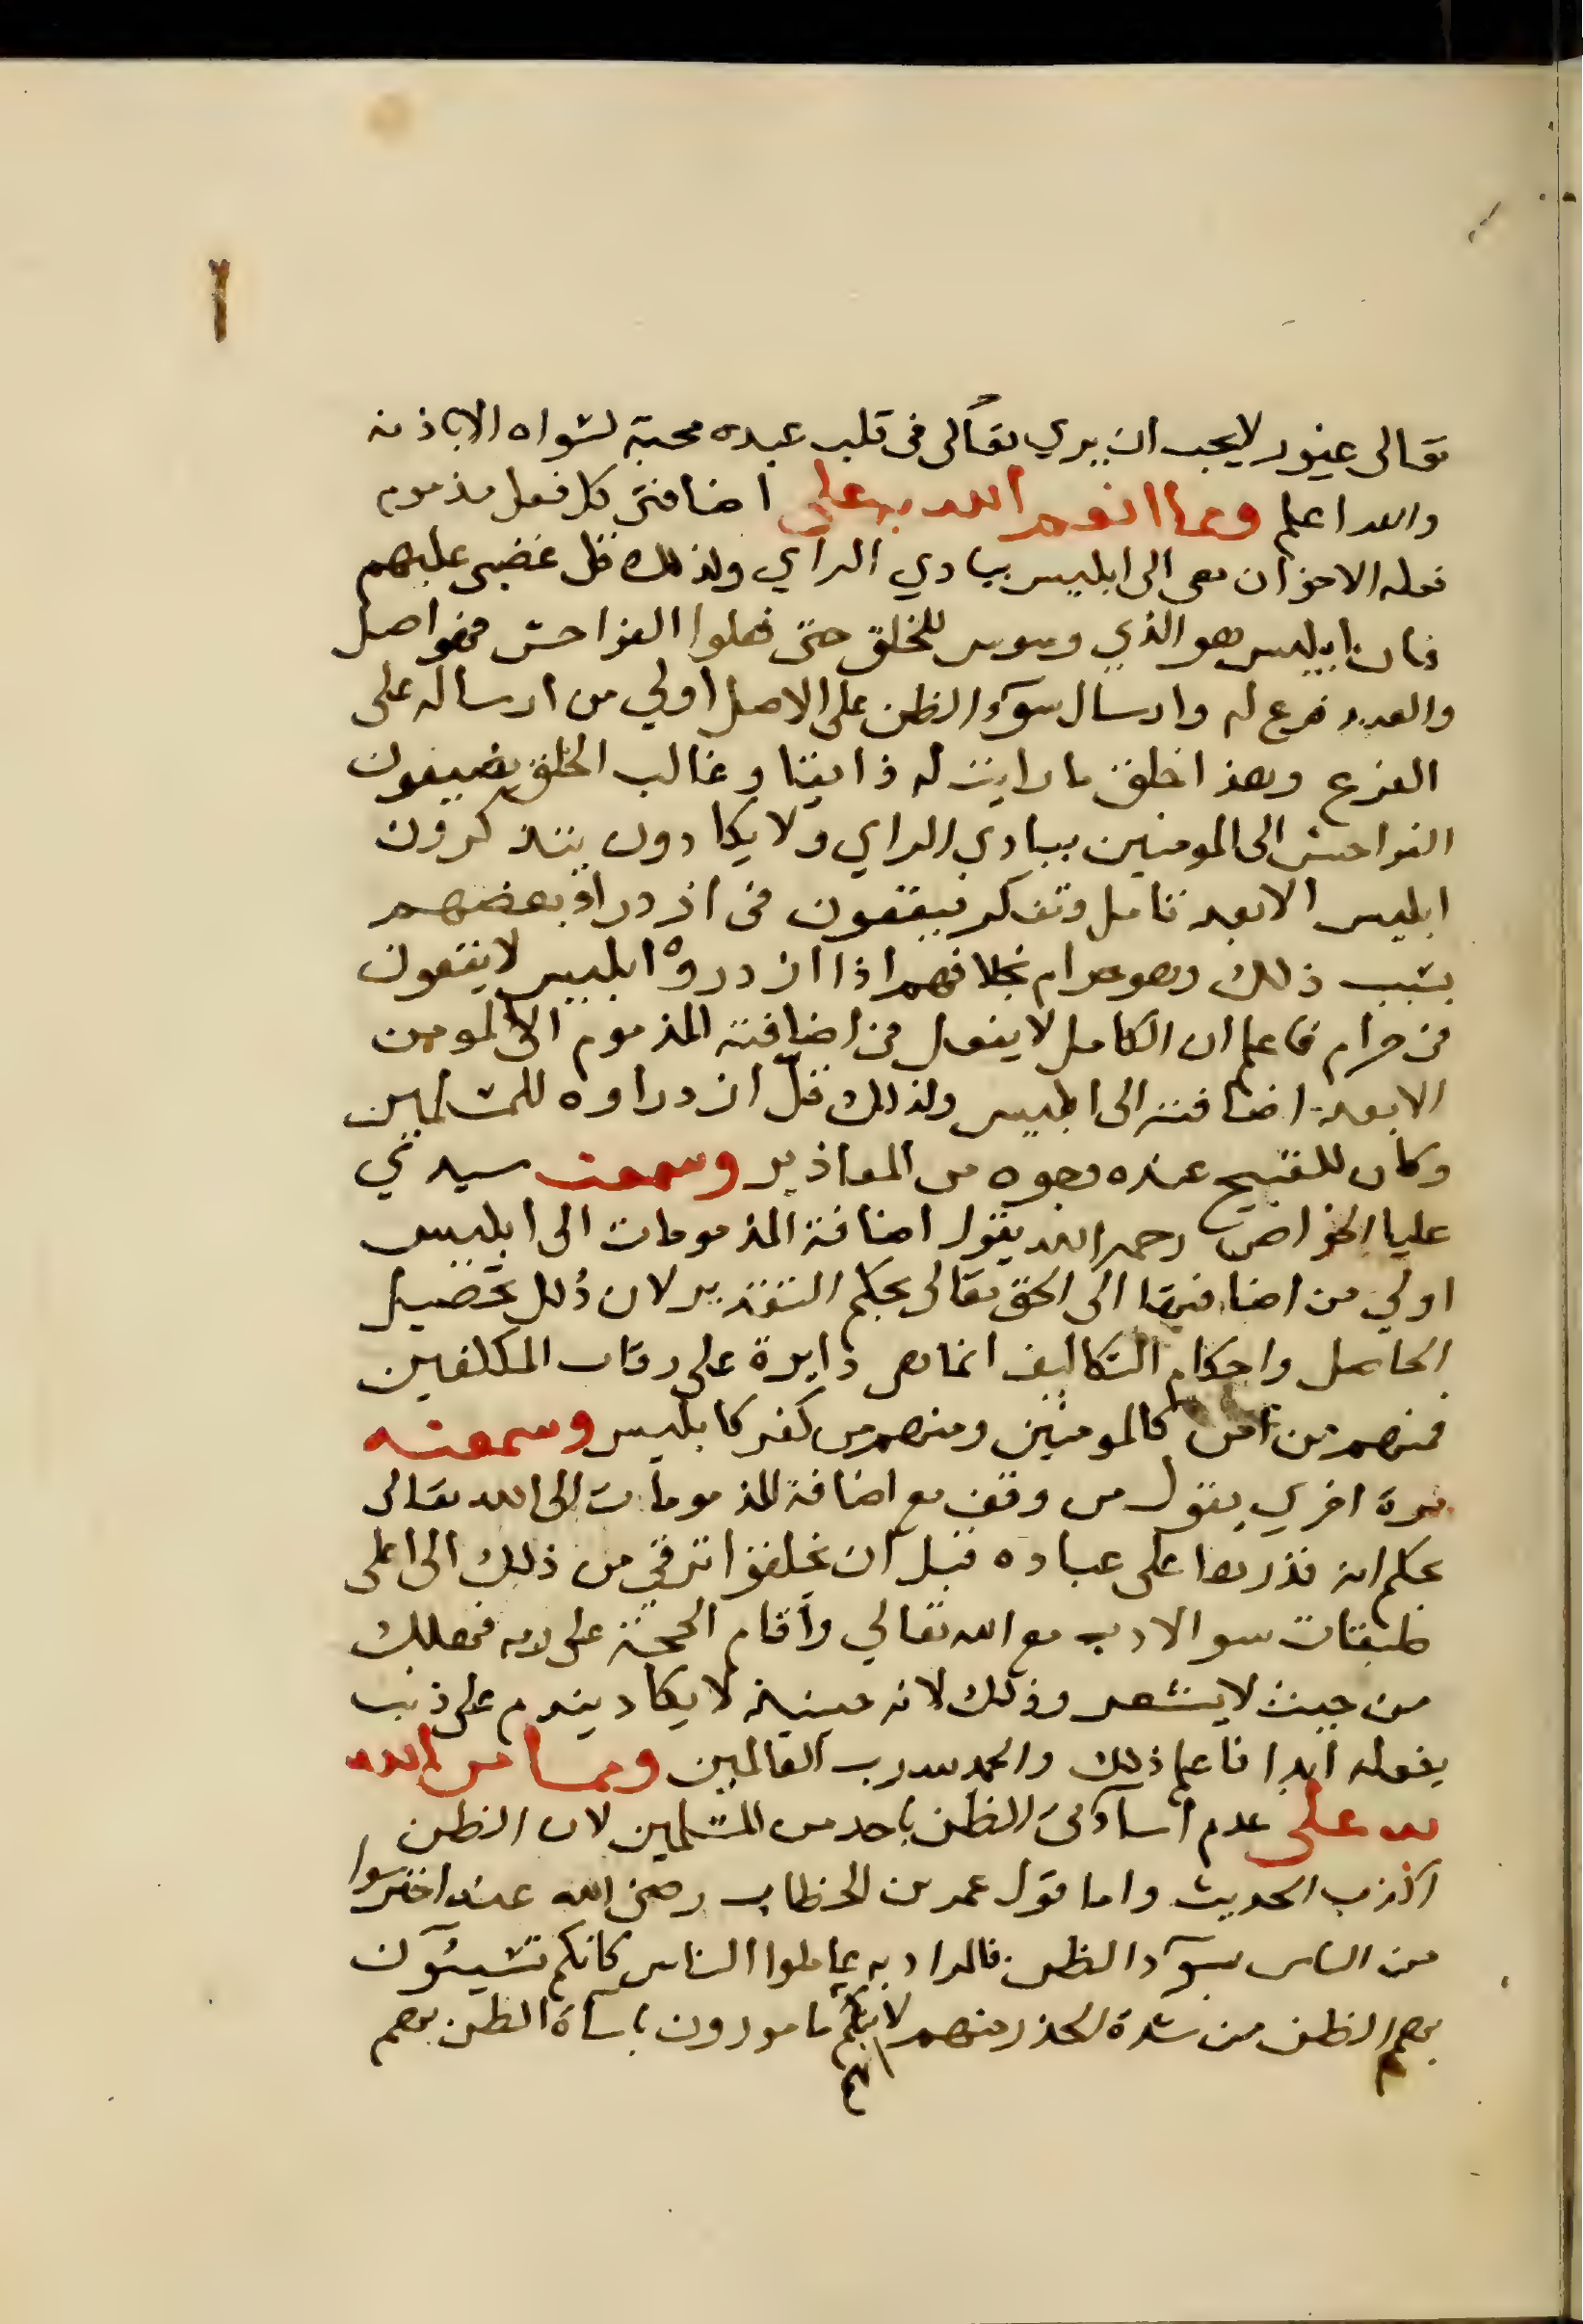 تعالى غيور لا يحب ان يري تعالى في قلب عبده محبة لسواه الا باذنه
والله اعلم ومما انعم الله به علي اضافتي كل فعل مذموم
فعله الاخوان معي الى ابليس ببادي الراي ولذلك قل غضبي عليهم
فان ابليس هو الذي وسوس للخلق حتى فعلوا الفواحش فهو اصل
والعبد فرع له وارسال سوء الظن على الاصل اولي من ارساله على
الفرع وهذا خلق ما رايت له ذايقا وغالب الخلق يضيفون
الفواحش الى المومنين ببادي الراي ولا يكادون يتذكرون
ابليس الا بعد تامل وتفكر فيقعون في ازدراء بعضهم
بسبب ذلك وهو حرام بخلافهم اذا ازدروا ابليس لا يقعون
في حرام فاعلم ان الكامل لا ينقل في اضافته المذموم الى المومن
الا بعد اضافته الى ابليس ولذلك قل ازدراوه للمسلمين
وكان للقبيح عنده وجوه من المعاذير وسمعت سيدي
عليا الخواص رحمه الله يقول اضافة المذمومات الى ابليس
اولي من اضافتها الى الحق تعالى بحكم التقدير لان ذلك تحصيل
الحاصل واحكام التكاليف انما هي دايرة على رقاب المكلفين
فمنهم من امن كالمومنين ومنهم من كفر كابليس وسمعته
مرة اخري يقول من وقف مع اضافة المذمومات الى الله تعالى
بحكم انه قدرها على عباده قبل ان يخلقوا ترقي من ذلك الى اعلى
طبقات سو الادب مع الله تعالي واقام الحجة على ربه فهلك
من حيث لا يشعر وذلك لانه حينيذ لا يكاد يندم على ذنب
يفعله ابدا فاعلم ذلك والحمد لله رب العالمين ومما من الله
به علي عدم اساءتي الظن باحد من المسلمين لان الظن
اكذب الحديث واما قول عمر بن الخطاب رضي الله عنه احترسوا
من الناس بسوء الظن فالمراد به عاملوا الناس كانكم تسيئون
بهم الظن من شدة الحذر منهم لا انكم مامورون باساءة الظن بهم